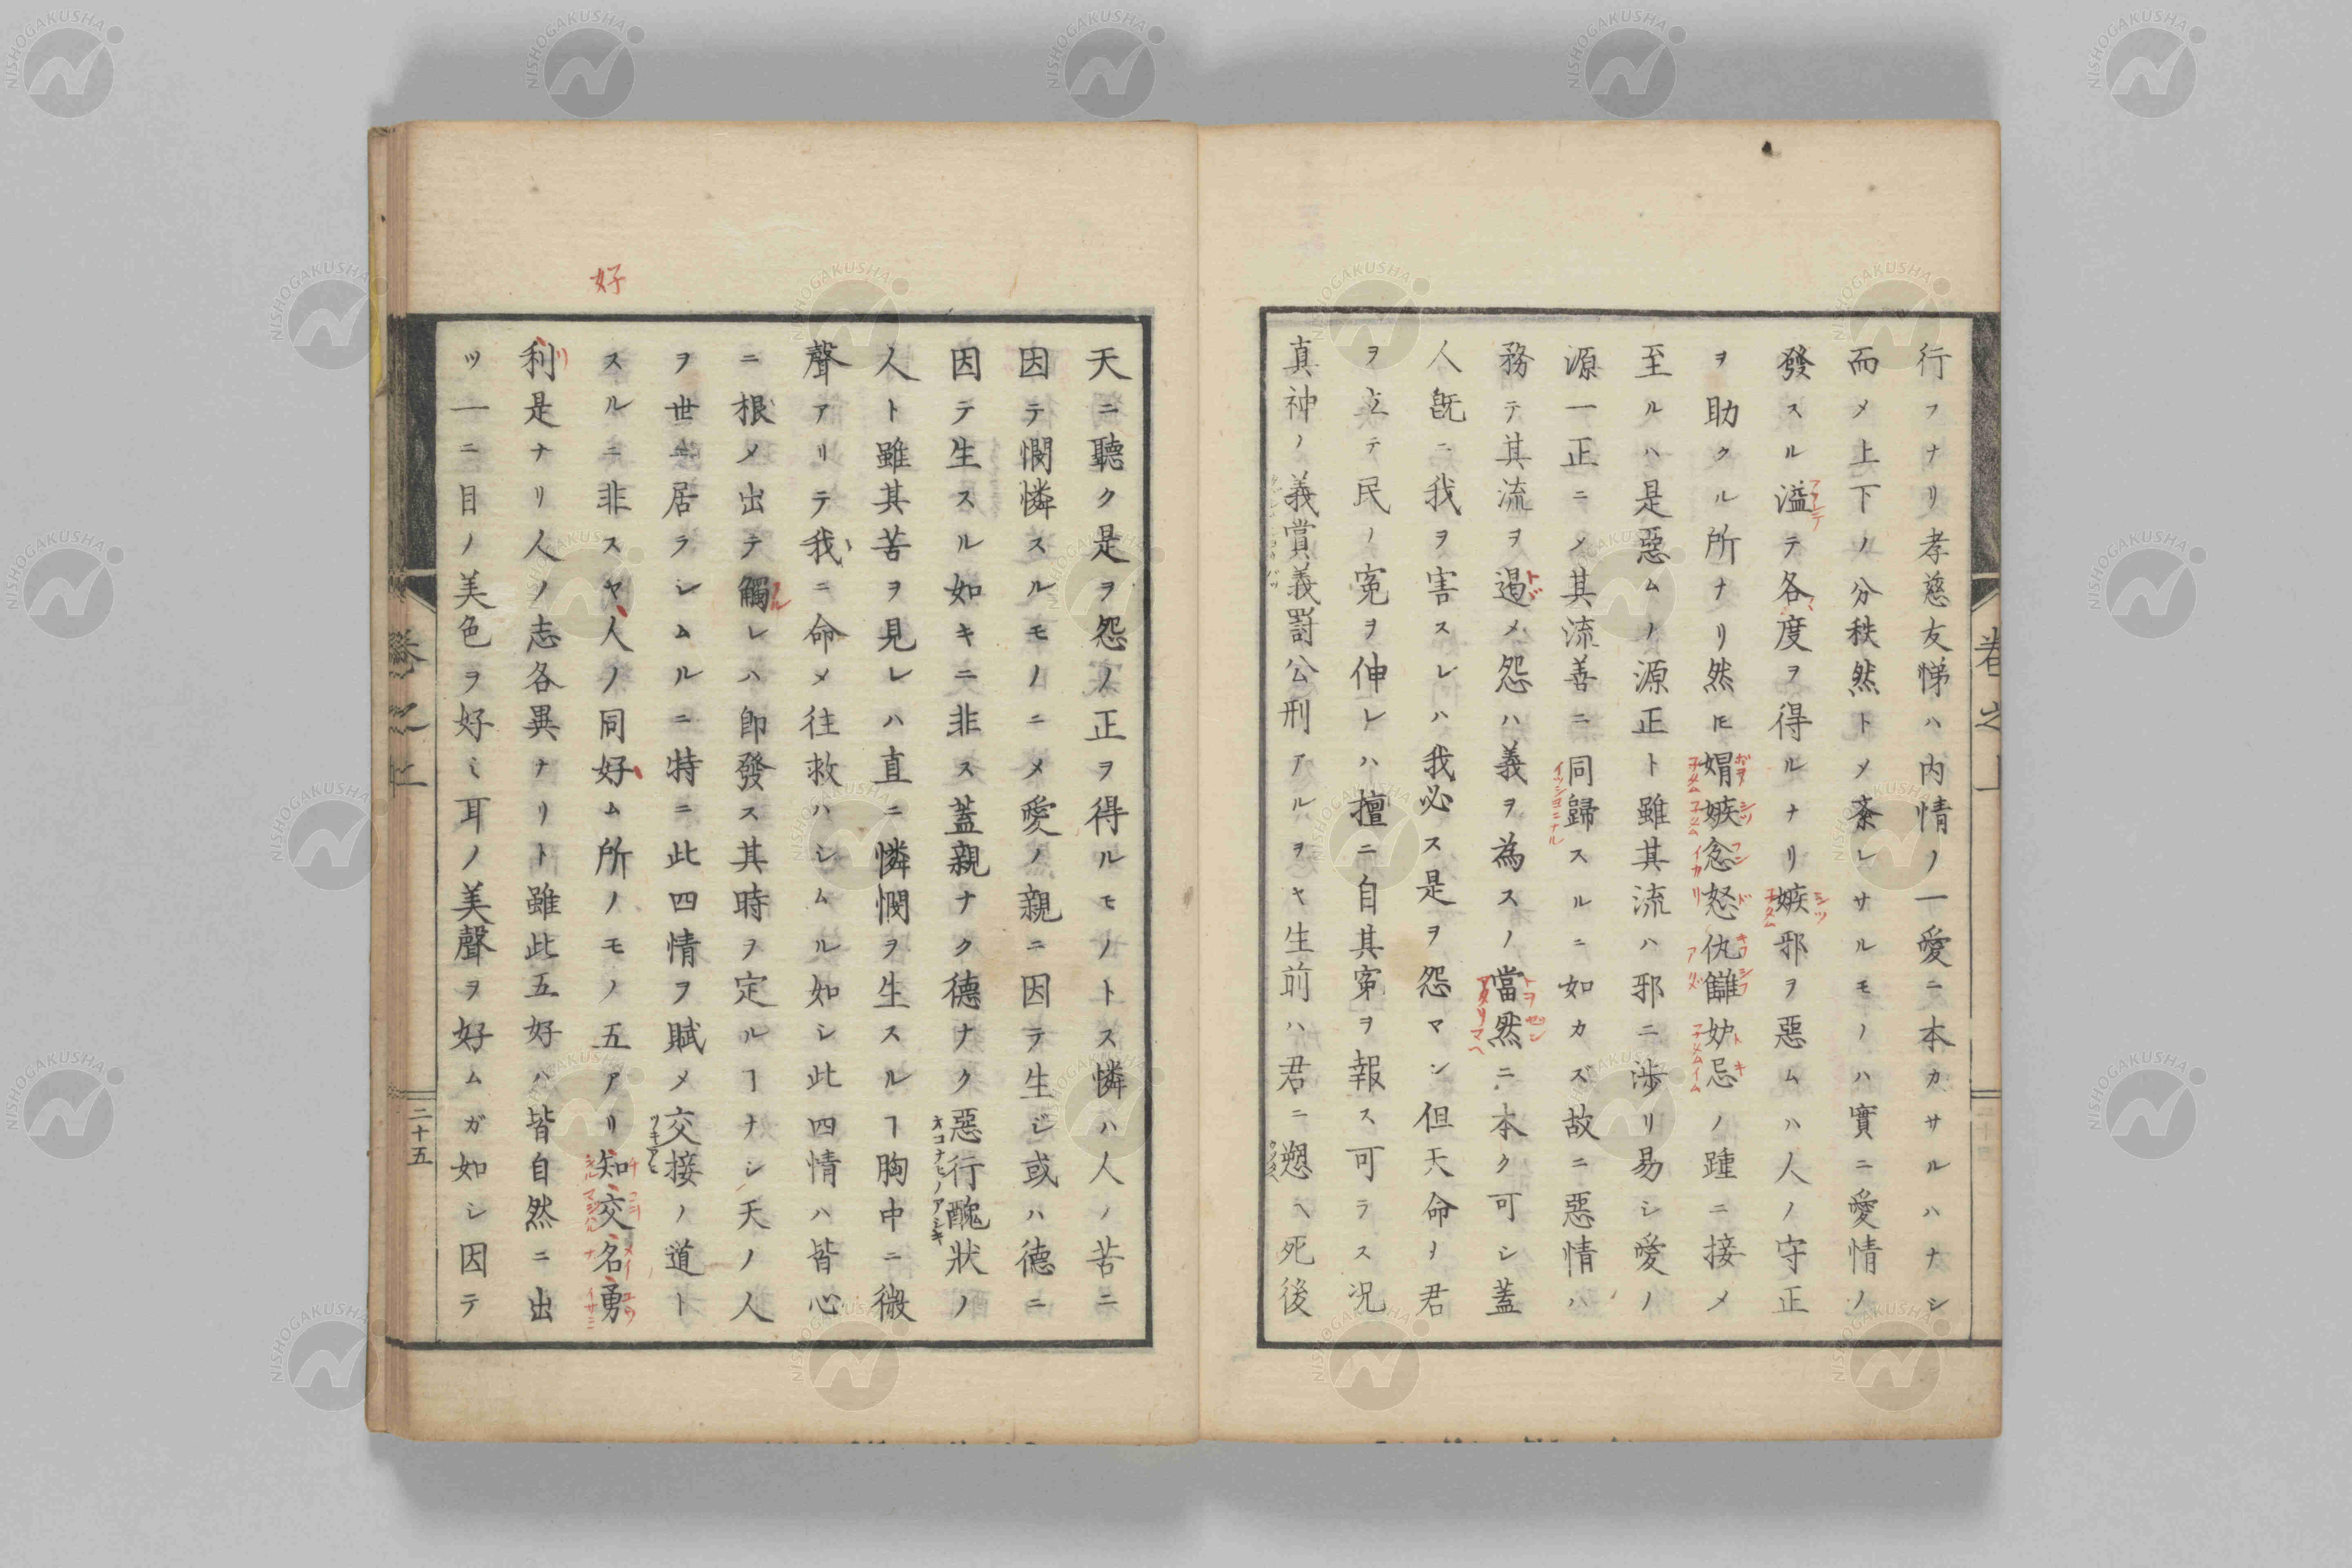 行フナリ孝慈友悌ハ内情ノ一愛ニ本カサルハナシ
而メ上下ノ分秩然トメ紊レサルモノハ實ニ愛情ノ
發スル溢テ各度ヲ得ルナリ嫉邪ヲ惡ムハ人ノ守正
ヲ助クル所ナリ然𪜈媢嫉忿怒仇讎妒忌ノ踵ニ接メ
至ルハ是惡ムノ源正ト雖其流ハ邪ニ渉リ易シ愛ノ
源一正ニメ其流善ニ同歸スルニ如カズ故ニ惡情ハ
務テ其流ヲ遏メ怨ハ義ヲ為スノ當然ニ本ク可シ蓋
人既ニ我ヲ害スレハ我必ス是ヲ怨マン但天命ノ君
ヲ立テ民ノ寃ヲ伸レハ擅ニ自其寃ヲ報ス可ラス况
真神ノ義賞義罰公刑アルヲヤ生前ハ君ニ遡ヘ死後
卷之上
天ニ聽ク是ヲ怨ノ正ヲ得ルモノトス憐ハ人ノ苦ニ
因テ憫憐スルモノニメ愛ノ親ニ因テ生ジ或ハ德ニ
因テ生スル如キニ非ス蓋親ナク德ナク惡行醜狀ノ
人ト雖其苦ヲ見レハ直ニ憐憫ヲ生スルヿ胸中ニ微
聲アリテ我ニ命メ往救ハシムル如シ此四情ハ皆心
ニ根メ出テ觸レハ即發ス其時ヲ定ルヿナシ天ノ人
ヲ世ニ居ラシムルニ特ニ此四情ヲ賦メ交接ノ道ト
好
スルニ非スヤ人ノ同好ム所ノモノ五アリ知交名勇
利是ナリ人ノ志各異ナリト雖此五好ハ皆自然ニ出
ツ一ニ目ノ美色ヲ好ミ耳ノ美聲ヲ好ムガ如シ因テ
卷之上
二十五